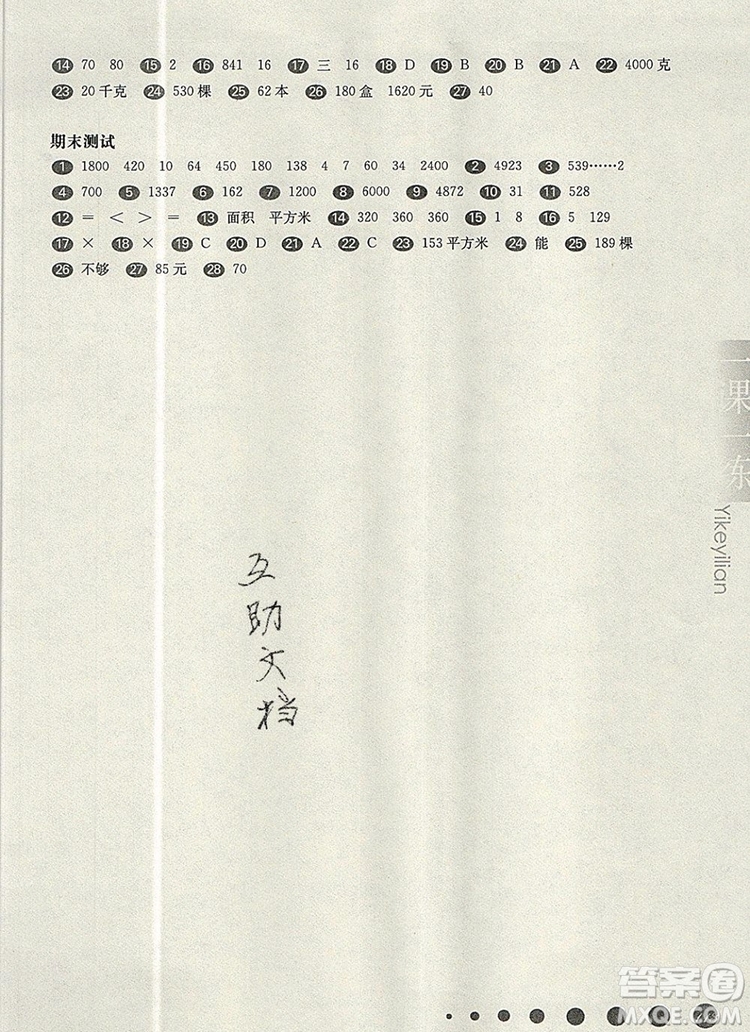 ⑭ 70 80 ⑮ 2 ⑯ 841 16 ⑰ 三 16 ⑱ D ⑲ B ⑳ B ㉑ A ㉒ 4000克
㉓ 20千克 ㉔ 530棵 ㉕ 62本 ㉖ 180盒 1620元 ㉗ 40
期末测试
① 1800 420 10 64 450 180 138 4 7 60 34 2400 ② 4923 ③ 539……2
④ 700 ⑤ 1337 ⑥ 162 ⑦ 1200 ⑧ 6000 ⑨ 4872 ⑩ 31 ⑪ 528
⑫ = < > = ⑬ 面积 平方米 ⑭ 320 360 360 ⑮ 1 8 ⑯ 5 129
⑰ × ⑱ × ⑲ C ⑳ D ㉑ A ㉒ C ㉓ 153平方米 ㉔ 能 ㉕ 189棵
㉖ 不够 ㉗ 85元 ㉘ 70
一课一练
Yikeyilian
互助文档
答案圈
MXQE.COM